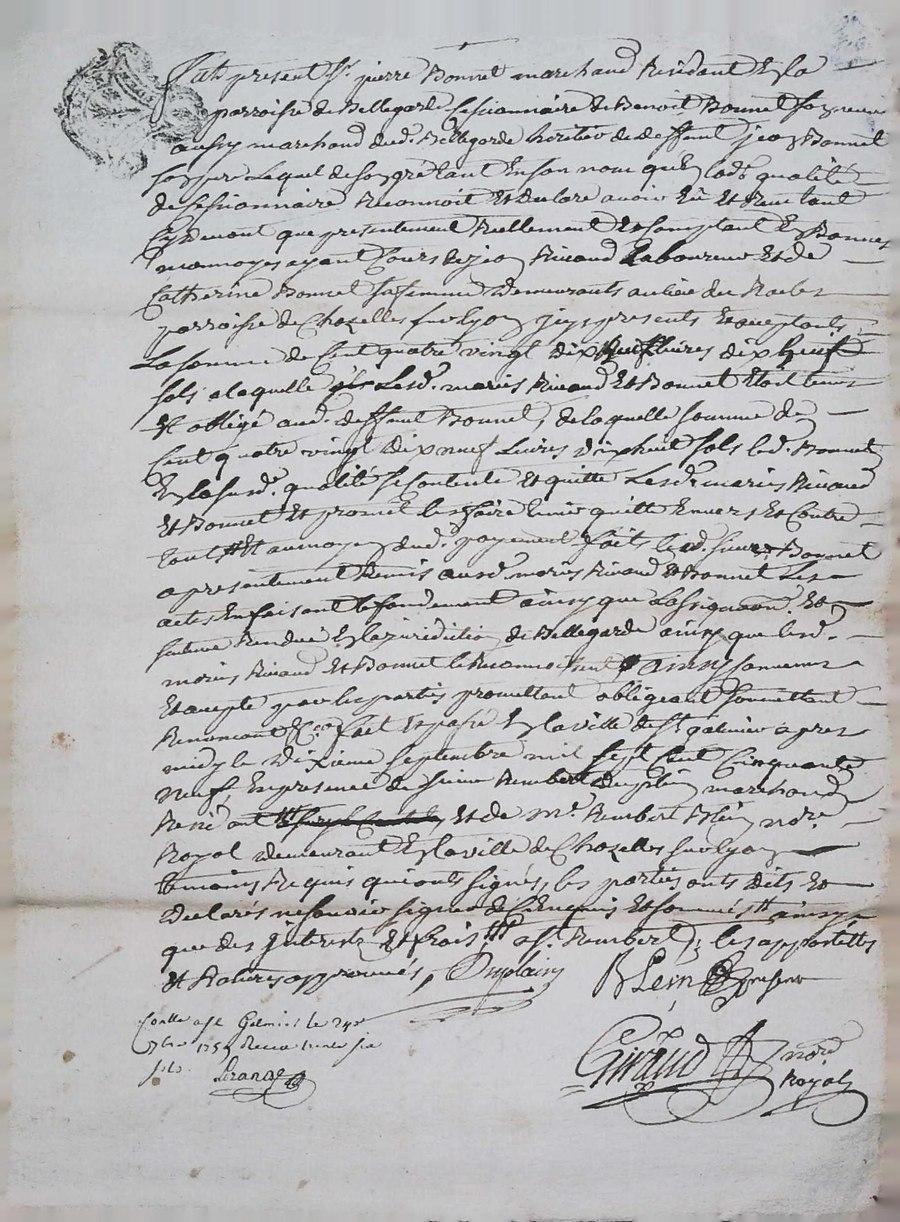 fut present Sr. pierre Bonnet marchand Residant En la
parroisse de Bellegarde Cessionnaire de Benoit Bonnet son
aussy marchand dud. Bellegarde heritier de deffunt jean Bonnet
son lequel de son gré tant En son nom qu'En lad. qualité
de Cessionnaire Reconnoit Et declare avoir Eü Et Reçu tant
Cydevant que presentement Reellement Et Comptant En Bonnes
monnoyes ayant Cours de jean Riraud Laboureur Et de
Catherine Bonnet sa femme demeurants au lieu du
parroisse de Chazelles sur lyon jcy presents Et acceptants
La somme de Cent quatre vingt dix neuf livres dix huit
sols a laquelle lesd. mariés Riraud Et Bonnet Etoit tenus
Et obligé aud. deffunt Bonnet, de laquelle somme de
Cent quatre vingt dix neuf Livres dix huit sols led. Bonnet
En lasusd. qualité se Contente Et quitte Lesd. mariés Riraud
Et Bonnet Et promet les faire tenir quitte Envers Et Contre
tout Et au moyen dud. payement fait led. sieur Bonnet
a presentement Remis ausd. mariés Riraud Et Bonnet Les
actes En faisant le fondement ainsy que La Et
sentence Rendüe En la juridiction de Bellegarde ainsy que lesd.
mariés Riraud Et Bonnet le Reconnoissent ainsy Convenu
Et accepté par les parties promettant obligeant soumettant
Renonçant &c. fait Et passé En la ville de St. galmier apres
midy le dixieme septembre mil sept Cent Cinquante
neuf, En presence de sieur Rembert Duplein marchand
Et de Me. Rembert Plein nore.
Royal demeurant En la ville de Chazelles sur lyon
temoins Requis qui ont signés, les parties ont dits Et
declarés ne sçavoir signer de ce Enquis Et sommés ainsy
que des jnterests Et frais Rembert les appostilles
Et Ratures approuvés, Duplain
R Plein present
Giraud nore. Royal
Contlé a St Galmier le 24e
7bre 1759 Recu trente six
sols.